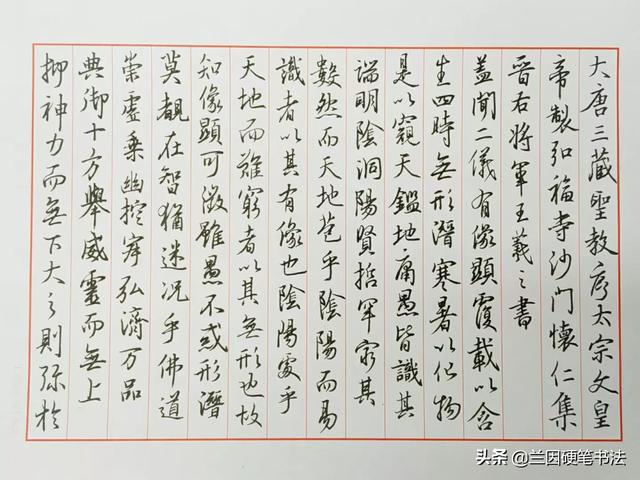 大唐三藏聖教序太宗文皇
帝製弘福寺沙門懷仁集
晉右將軍王羲之書
蓋聞二儀有像顯覆載以含
生四時無形潛寒暑以化物
是以窺天鑑地庸愚皆識其
端明陰洞陽賢哲罕窮其
數然而天地苞乎陰陽而易
識者以其有像也陰陽處乎
天地而難窮者以其無形也故
知像顯可徵雖愚不惑形潛
莫覩在智猶迷況乎佛道
崇虛乘幽控寂弘濟万品
典御十方舉威靈而無上
抑神力而無下大之則彌於
头条 @兰因硬笔书法